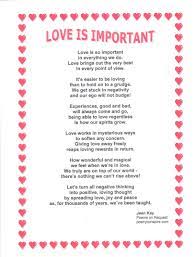 LOVE IS IMPORTANT
Love is so important
in everything we do.
Love brings out the very best
in every point of view.
It's easier to be loving
than to hold on to a grudge.
We get stuck in negativity
and our ego will not budge!
Experiences, good and bad,
will always come and go,
being able to love regardless
is how our spirits grow.
Love works in mysterious ways
to soften any concern.
Giving love away freely
reaps loving rewards in return.
How wonderful and magical
we feel when we're in love.
We truly are on top of our world -
there's nothing we can't rise above!
Let's turn all negative thinking
into positive, loving thought
by spreading love, joy and peace
as, for thousands of years, we've been taught.
Jean Kay
Poems on Request